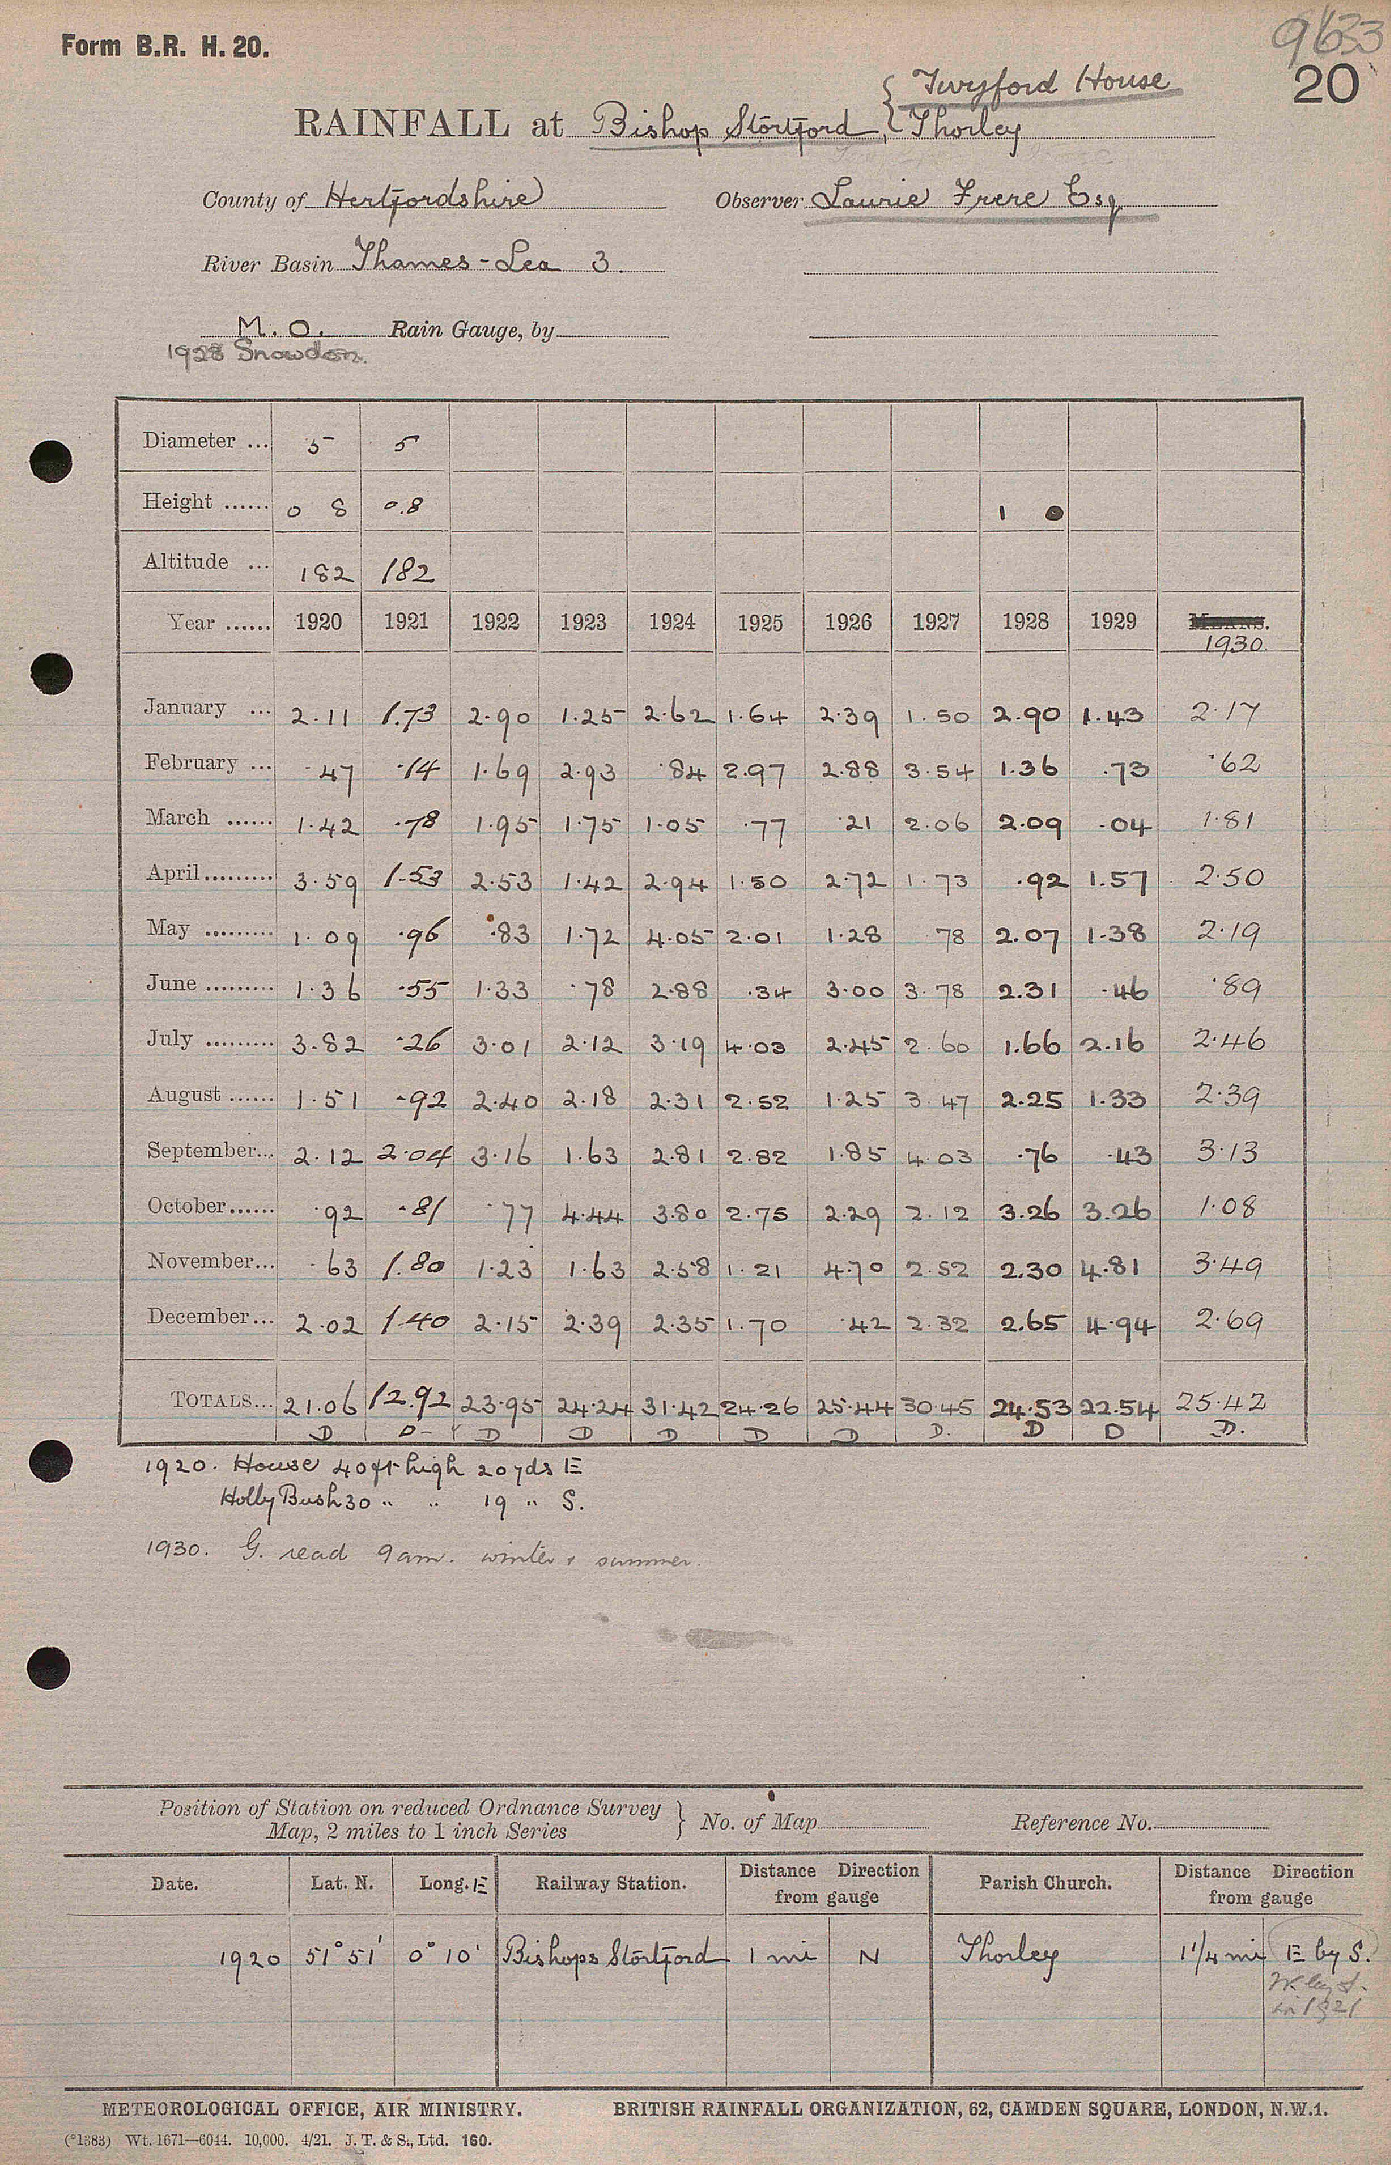 Form B.R. H. 20.
9633
20
Twyford House
RAINFALL at Bishop Stortford, { Thorley
County of Hertfordshire Observer Laurie Frere Esq
River Basin Thames - Lea 3.
M. O. Rain Gauge, by
1928 Snowdon.
Diameter ... 5 5
Height ...... 0 8 0.8 1 0
Altitude ... 182 182
Year ...... 1920 1921 1922 1923 1924 1925 1926 1927 1928 1929 MEANS. 1930.
January ... 2.11 1.73 2.90 1.25 2.62 1.64 2.39 1.50 2.90 1.43 2.17
February ... .47 .14 1.69 2.93 .84 2.97 2.88 3.54 1.36 .73 .62
March ...... 1.42 .78 1.95 1.75 1.05 .77 .21 2.06 2.09 .04 1.81
April ......... 3.59 1.53 2.53 1.42 2.94 1.50 2.72 1.73 .92 1.57 2.50
May ......... 1.09 .96 .83 1.72 4.05 2.01 1.28 .78 2.07 1.38 2.19
June ......... 1.36 .55 1.33 .78 2.88 .34 3.00 3.78 2.31 .46 .89
July ......... 3.82 .26 3.01 2.12 3.19 4.03 2.45 2.60 1.66 2.16 2.46
August ...... 1.51 .92 2.40 2.18 2.31 2.52 1.25 3.47 2.25 1.33 2.39
September... 2.12 2.04 3.16 1.63 2.81 2.82 1.85 4.03 .76 .43 3.13
October ...... .92 .81 .77 4.44 3.80 2.75 2.29 2.12 3.26 3.26 1.08
November... .63 1.80 1.23 1.63 2.58 1.21 4.70 2.52 2.30 4.81 3.49
December... 2.02 1.40 2.15 2.39 2.35 1.70 .42 2.32 2.65 4.94 2.69
TOTALS... 21.06 12.92 23.95 24.24 31.42 24.26 25.44 30.45 24.53 22.54 25.42
D D- D D D D D D. D D D.
1920. House 40 ft high 20 yds E
Holly Bush 30 " " 19 " S.
1930. G. read 9 am. winter & summer.
Position of Station on reduced Ordnance Survey
Map, 2 miles to 1 inch Series } No. of Map Reference No.
Date. Lat. N. Long. E Railway Station. Distance Direction from gauge Parish Church. Distance Direction from gauge
1920 51° 51' 0° 10' Bishops Stortford 1 mi N Thorley 1 1/4 mi E by S.
in 1921
METEOROLOGICAL OFFICE, AIR MINISTRY. BRITISH RAINFALL ORGANIZATION, 62, CAMDEN SQUARE, LONDON, N.W.1.
(*1383) Wt. 1671—6044. 10,000. 4/21. J. T. & S., Ltd. 160.